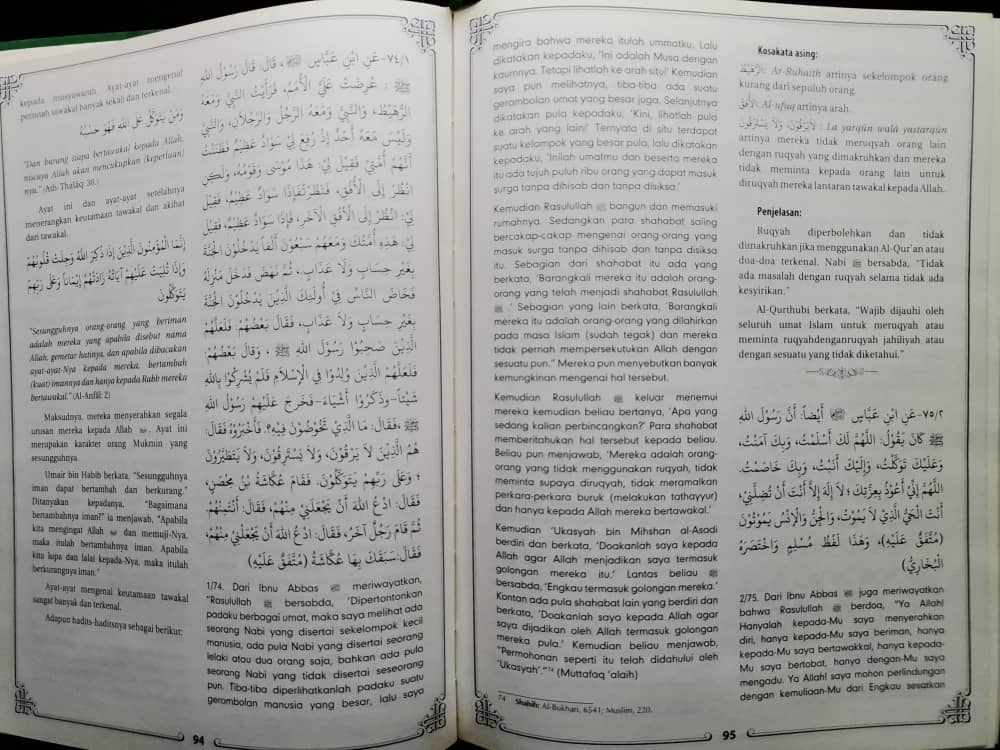 kepada musyawarah. Ayat-ayat mengenai
perintah tawakal banyak sekali dan terkenal.
وَمَنْ يَتَوَكَّلْ عَلَى اللهِ فَهُوَ حَسْبُهُ
"Dan barang siapa bertawakal kepada Allah,
niscaya Allah akan mencukupkan (keperluan)
nya." (Ath-Thalâq: 30.)
Ayat ini dan ayat-ayat setelahnya
menerangkan keutamaan tawakal dan akibat
dari tawakal.
إِنَّمَا الْمُؤْمِنُونَ الَّذِينَ إِذَا ذُكِرَ اللهُ وَجِلَتْ قُلُوبُهُمْ
وَإِذَا تُلِيَتْ عَلَيْهِمْ آيَاتُهُ زَادَتْهُمْ إِيْمَانًا وَعَلَى رَبِّهِمْ
يَتَوَكَّلُونَ
"Sesungguhnya orang-orang yang beriman
adalah mereka yang apabila disebut nama
Allah, gemetar hatinya, dan apabila dibacakan
ayat-ayat-Nya kepada mereka, bertambah
(kuat) imannya dan hanya kepada Rabb mereka
bertawakal." (Al-Anfâl: 2)
Maksudnya, mereka menyerahkan segala
urusan mereka kepada Allah. Ayat ini
merupakan karakter orang Mukmin yang
sesungguhnya.
Umair bin Habib berkata, "Sesungguhnya
iman dapat bertambah dan berkurang."
Ditanyakan kepadanya, "Bagaimana
bertambahnya iman?" ia menjawab, "Apabila
kita mengingat Allah dan memuji-Nya,
maka itulah bertambahnya iman. Apabila
kita lupa dan lalai kepada-Nya, maka itulah
berkurangnya iman."
Ayat-ayat mengenai keutamaan tawakal
sangat banyak dan terkenal.
Adapun hadits-haditsnya sebagai berikut:
٧٤/١-عَنِ ابْنِ عَبَّاسٍ ، قَالَ: قَالَ رَسُوْلُ اللهِ
ﷺ : عُرِضَتْ عَلَيَّ الْأُمَمُ، فَرَأَيْتُ النَّبِيَّ وَمَعَهُ
الرُّهَيْطُ، وَالنَّبِيَّ وَمَعَهُ الرَّجُلُ وَالرَّجُلَانِ، وَالنَّبِيَّ
وَلَيْسَ مَعَهُ أَحَدٌ إِذْ رُفِعَ لِيْ سَوَادٌ عَظِيْمٌ فَظَنَنْتُ
أَنَّهُمْ أُمَّتِيْ فَقِيْلَ لِيْ: هَذَا مُوْسَى وَقَوْمُهُ، وَلَكِنِ
انْظُرْ إِلَى الْأُفُقِ، فَنَظَرْتُ فَإِذَا سَوَادٌ عَظِيْمٌ، فَقِيْلَ
لِيْ: انْظُرْ إِلَى الْأُفُقِ الْآخَرِ، فَإِذَا سَوَادٌ عَظِيْمٌ، فَقِيْلَ
لِيْ: هَذِهِ أُمَّتُكَ وَمَعَهُمْ سَبْعُوْنَ أَلْفًا يَدْخُلُوْنَ الْجَنَّةَ
بِغَيْرِ حِسَابٍ وَلَا عَذَابٍ، ثُمَّ نَهَضَ فَدَخَلَ مَنْزِلَهُ
فَخَاضَ النَّاسُ فِيْ أُولَئِكَ الَّذِيْنَ يَدْخُلُوْنَ الْجَنَّةَ
بِغَيْرِ حِسَابٍ وَلَا عَذَابٍ، فَقَالَ بَعْضُهُمْ: فَلَعَلَّهُمُ
الَّذِيْنَ صَحِبُوْا رَسُوْلَ اللهِ ﷺ ، وَقَالَ بَعْضُهُمْ:
فَلَعَلَّهُمُ الَّذِيْنَ وُلِدُوْا فِي الْإِسْلَامِ فَلَمْ يُشْرِكُوْا بِاللهِ
شَيْئًا-وَذَكَرُوْا أَشْيَاءَ-فَخَرَجَ عَلَيْهِمْ رَسُوْلُ اللهِ
ﷺ ،فَقَالَ: مَا الَّذِيْ تَخُوْضُوْنَ فِيْهِ؟. فَأَخْبَرُوْهُ فَقَالَ:
هُمُ الَّذِيْنَ لَا يَرْقُوْنَ، وَلَا يَسْتَرْقُوْنَ، وَلَا يَتَطَيَّرُوْنَ
؛ وَعَلَى رَبِّهِمْ يَتَوَكَّلُوْنَ. فَقَامَ عُكَّاشَةُ بْنُ مِحْصَنٍ،
فَقَالَ: ادْعُ اللهَ أَنْ يَجْعَلَنِيْ مِنْهُمْ، فَقَالَ: أَنْتَ مِنْهُمْ،
ثُمَّ قَامَ رَجُلٌ آخَرُ، فَقَالَ: ادْعُ اللهَ أَنْ يَجْعَلَنِيْ مِنْهُمْ،
فَقَالَ:سَبَقَكَ بِهَا عُكَّاشَةُ (مُتَّفَقٌ عَلَيْهِ)
1/74. Dari Ibnu Abbas meriwayatkan,
"Rasulullah ﷺ bersabda, 'Dipertontonkan
padaku berbagai umat, maka saya melihat ada
seorang Nabi yang disertai sekelompok kecil
manusia, ada pula Nabi yang disertai seorang
lelaki atau dua orang saja, bahkan ada pula
seorang Nabi yang tidak disertai seseorang
pun. Tiba-tiba diperlihatkanlah padaku suatu
gerombolan manusia yang besar, lalu saya
94
mengira bahwa mereka itulah ummatku. Lalu
dikatakan kepadaku, 'Ini adalah Musa dengan
kaumnya. Tetapi lihatlah ke arah situ!' Kemudian
saya pun melihatnya, tiba-tiba ada suatu
gerombolan umat yang besar juga. Selanjutnya
dikatakan pula kepadaku, 'Kini, lihatlah pula
ke arah yang lain!' Ternyata di situ terdapat
suatu kelompok yang besar pula, lalu dikatakan
kepadaku, 'Inilah umatmu dan beserta mereka
itu ada tujuh puluh ribu orang yang dapat masuk
surga tanpa dihisab dan tanpa disiksa.'
Kemudian Rasulullah ﷺ bangun dan memasuki
rumahnya. Sedangkan para shahabat saling
bercakap-cakap mengenai orang-orang yang
masuk surga tanpa dihisab dan tanpa disiksa
itu. Sebagian dari shahabat itu ada yang
berkata, 'Barangkali mereka itu adalah orang-
orang yang telah menjadi shahabat Rasulullah
ﷺ.' Sebagian yang lain berkata, 'Barangkali
mereka itu adalah orang-orang yang dilahirkan
pada masa Islam (sudah tegak) dan mereka
tidak pernah mempersekutukan Allah dengan
sesuatu pun.'' Mereka pun menyebutkan banyak
kemungkinan mengenai hal tersebut.
Kemudian Rasulullah ﷺ keluar menemui
mereka kemudian beliau bertanya, 'Apa yang
sedang kalian perbincangkan?' Para shahabat
memberitahukan hal tersebut kepada beliau.
Beliau pun menjawab, 'Mereka adalah orang-
orang yang tidak menggunakan ruqyah, tidak
meminta supaya diruqyah, tidak meramalkan
perkara-perkara buruk (melakukan tathayyur)
dan hanya kepada Allah mereka bertawakal.'
Kemudian 'Ukasyah bin Mihshan al-Asadi
berdiri dan berkata, 'Doakanlah saya kepada
Allah agar Allah menjadikan saya termasuk
golongan mereka itu.' Lantas beliau ﷺ
bersabda, 'Engkau termasuk golongan mereka.'
Kontan ada pula shahabat lain yang berdiri dan
berkata, 'Doakanlah saya kepada Allah agar
saya dijadikan oleh Allah termasuk golongan
mereka pula.' Kemudian beliau menjawab,
"Permohonan seperti itu telah didahului oleh
'Ukasyah'."⁷⁴ (Muttafaq 'alaih)
74 Shahih: Al-Bukhari, 6541; Muslim, 220.
Kosakata asing:
الرُّهَيْطُ: Ar-Ruhaith artinya sekelompok orang
kurang dari sepuluh orang.
الْأُفُقُ: Al-ufuq artinya arah.
لَا يَرْقُوْنَ، وَلَا يَسْتَرْقُوْنَ : La yarqûn walâ yastarqûn
artinya mereka tidak meruqyah orang lain
dengan ruqyah yang dimakruhkan dan mereka
tidak meminta kepada orang lain untuk
diruqyah mereka lantaran tawakal kepada Allah.
Penjelasan:
Ruqyah diperbolehkan dan tidak
dimakruhkan jika menggunakan Al-Qur'an atau
doa-doa terkenal. Nabi ﷺ bersabda, "Tidak
ada masalah dengan ruqyah selama tidak ada
kesyirikan."
Al-Qurthubi berkata, "Wajib dijauhi oleh
seluruh umat Islam untuk meruqyah atau
meminta ruqyahdenganruqyah jahiliyah atau
dengan sesuatu yang tidak diketahui."
٧٥/٢-عَنِ ابْنِ عَبَّاسٍ أَيْضًا: أَنَّ رَسُوْلَ اللهِ
ﷺ كَانَ يَقُوْلُ: اللَّهُمَّ لَكَ أَسْلَمْتُ، وَبِكَ آمَنْتُ،
وَعَلَيْكَ تَوَكَّلْتُ، وَإِلَيْكَ أَنَبْتُ، وَبِكَ خَاصَمْتُ.
اللَّهُمَّ إِنِّيْ أَعُوْذُ بِعِزَّتِكَ ؛ لَا إِلَهَ إِلَّا أَنْتَ أَنْ تُضِلَّنِيْ،
أَنْتَ الْحَيُّ الَّذِيْ لَا يَمُوْتُ، وَالْجِنُّ وَالْإِنْسُ يَمُوْتُوْنَ
(مُتَّفَقٌ عَلَيْهِ)، وَهَذَا لَفْظُ مُسْلِمٍ وَاخْتَصَرَهُ
الْبُخَارِيُّ)
2/75. Dari Ibnu Abbas juga meriwayatkan
bahwa Rasulullah ﷺ berdoa, "Ya Allah!
Hanyalah kepada-Mu saya menyerahkan
diri, hanya kepada-Mu saya beriman, hanya
kepada-Mu saya bertawakkal, hanya kepada-
Mu saya bertobat, hanya dengan-Mu saya
mengadu. Ya Allah! saya mohon perlindungan
dengan kemuliaan-Mu dari Engkau sesatkan
95